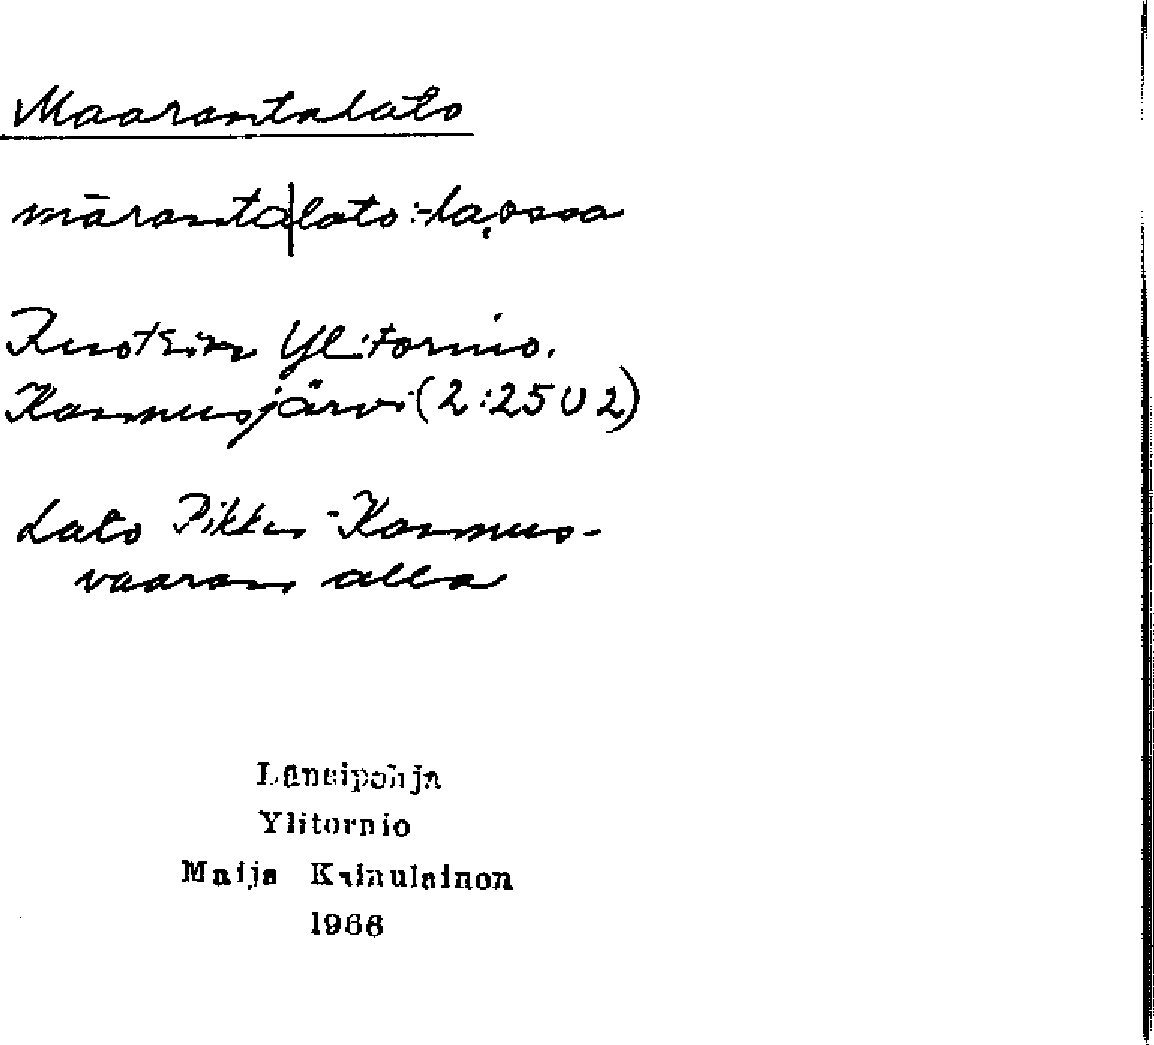 Maarantalato
māranta|lato:-laossa
Ruotsin Ylitornio.
Kannusjärvi (2:25 U 2)
Lato Pikku-Kannus-
vaaran alla
Länsipohja
Ylitornio
Maija Kainulainen
1966